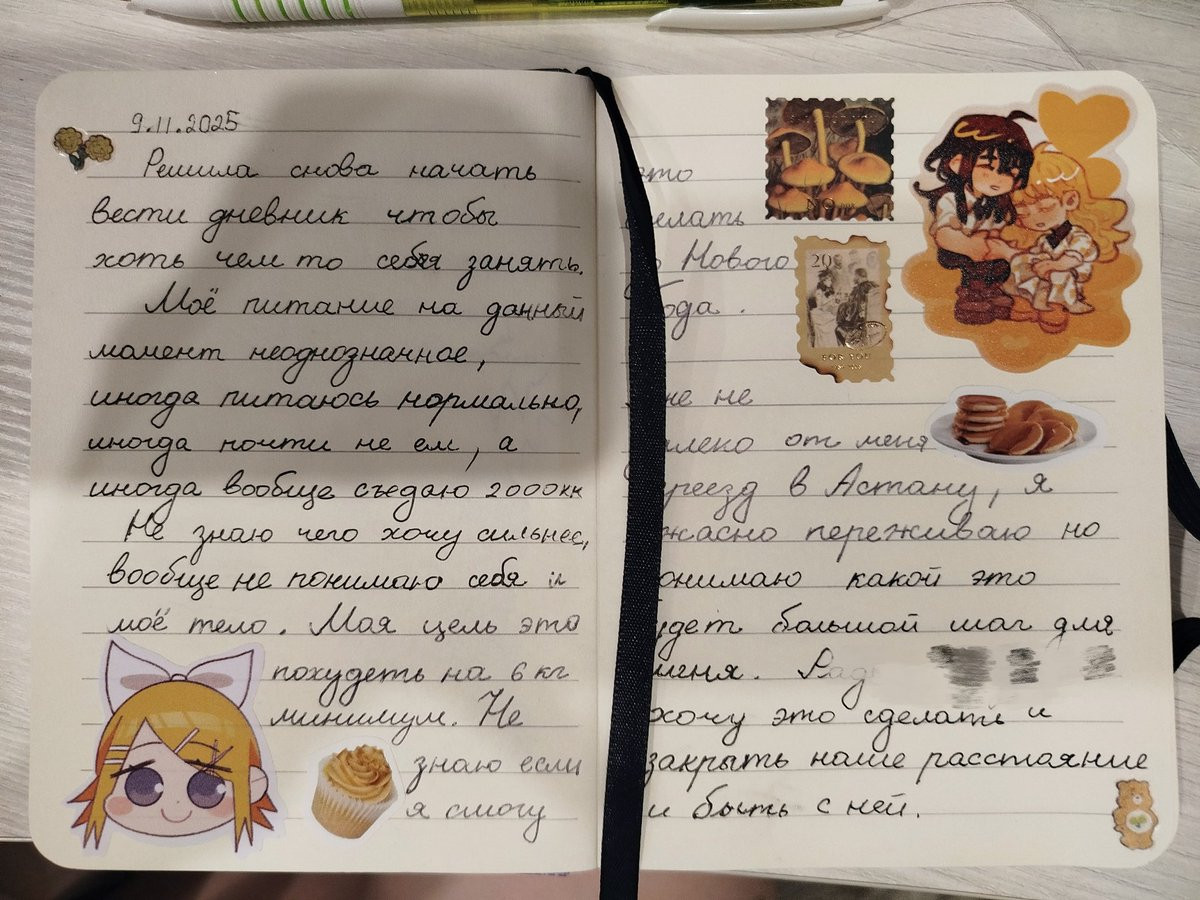 9.11.2025
Решила снова начать
вести дневник чтобы
хоть чем то себя занять.
Моё питание на данный
момент неоднозначное,
иногда питаюсь нормально,
иногда почти не ем, а
иногда вообще съедаю 2000кк
Не знаю чего хочу сильнее,
вообще не понимаю себя и
моё тело. Моя цель это
похудеть на 6 кг
минимум. Не
знаю если
я смогу
это
делать
Нового
года.
не
алеко от меня
реезд в Астану, я
жасно переживаю но
онимаю какой это
удет большой шаг для
меня. Рад
хочу это сделать и
закрыть наше расстояние
и быть с ней.
200
FOR YOU